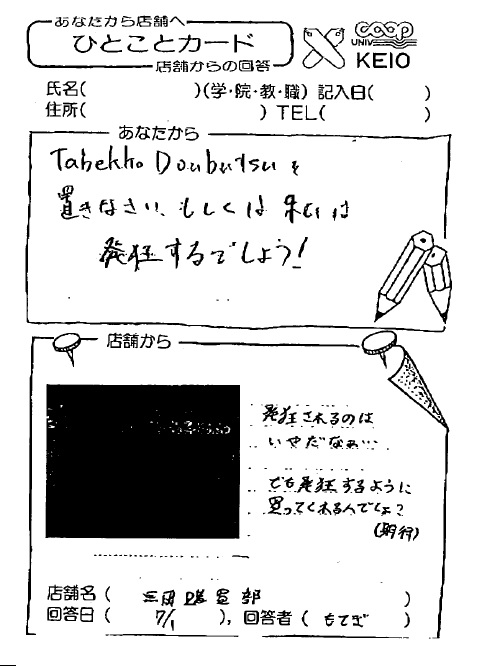 あなたから店舗へ
ひとことカード
店舗からの回答
UNIV
COOP
KEIO
氏名(　　　　)(学・院・教・職) 記入日(　　)
住所(　　　　) TEL(　　　　)
あなたから
Tabekko Doubutsu を
置きなさい、もしくは 私は
発狂するでしょう!
店舗から
発狂されるのは
いやだなぁ…
でも発狂するように
買ってくれるんでしょ?
店舗名( 三田購買部 )
回答日( 7/1 ), 回答者( もてぎ )